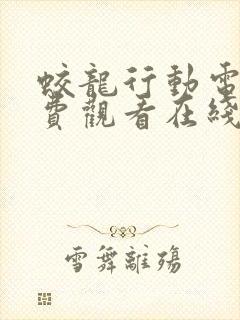 蛟龍行動電
費觀看在綫
雪舞離殤